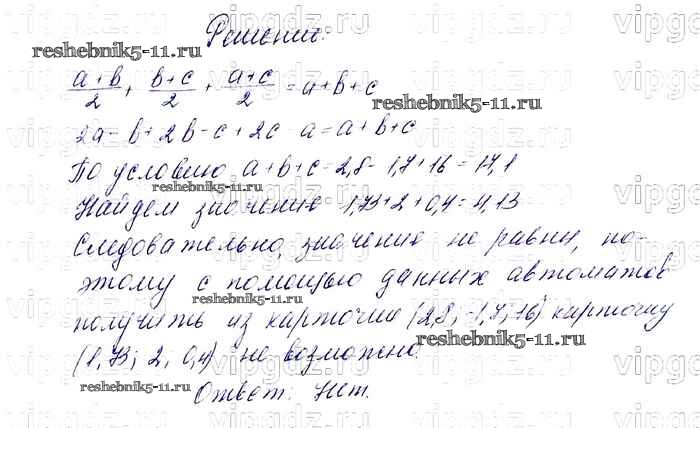 Решение:
reshebnik5-11.ru
a+b/2, b+c/2, a+c/2 = a+b+c
reshebnik5-11.ru
2a-b+2b-c+2c-a=a+b+c
По условию a+b+c=2,8-1,7+16=17,1
reshebnik5-11.ru
Найдем значение 1,73+2+0,4=4,13
Следовательно, значение не равны, по-
этому с помощью данных автоматов
reshebnik5-11.ru
получить из карточки (2,8; -1,7; 16) карточку
reshebnik5-11.ru
(1,73; 2; 0,4) не возможно.
reshebnik5-11.ru
Ответ: Нет.